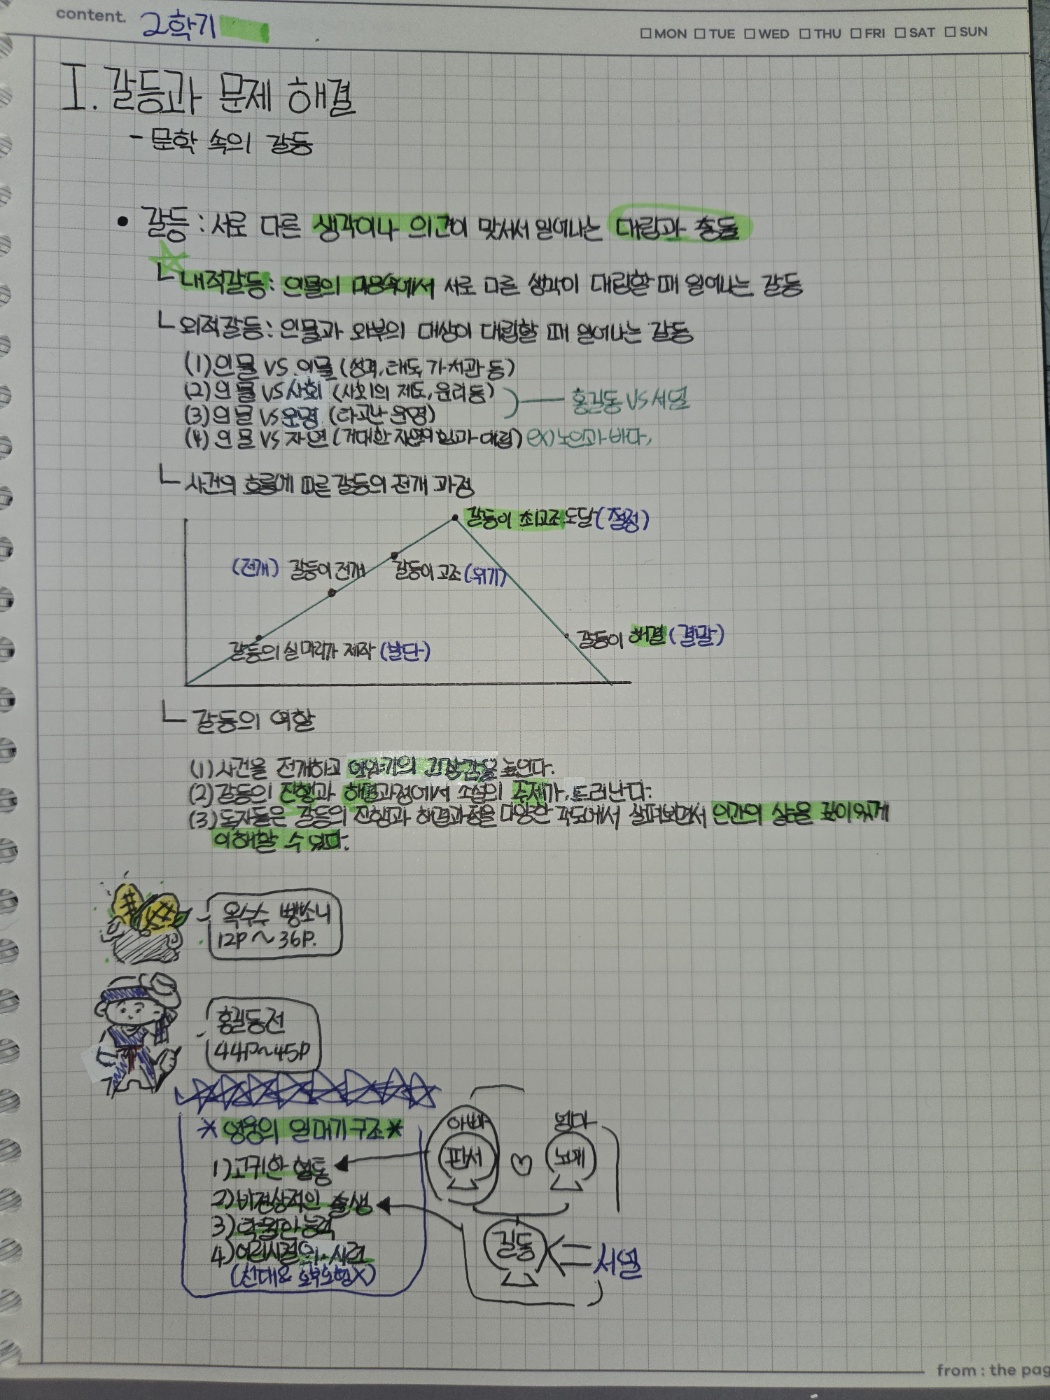 content. 2학기
□MON □TUE □WED □THU □FRI □SAT □SUN
I. 갈등과 문제 해결
- 문학 속의 갈등
• 갈등 : 서로 다른 생각이나 의견이 맞서서 일어나는 대립과 충돌
ㄴ 내적갈등 : 인물의 마음속에서 서로 다른 생각이 대립할 때 일어나는 갈등
ㄴ 외적갈등 : 인물과 외부의 대상이 대립할 때 일어나는 갈등
(1) 인물 VS 인물 (성격, 태도, 가치관 등)
(2) 인물 VS 사회 (사회의 제도, 윤리 등)
(3) 인물 VS 운명 (타고난 운명)
홍길동 VS 서얼
(4) 인물 VS 자연 (거대한 자연의 힘과 대립) ex) 노인과 바다,
ㄴ 사건의 흐름에 따른 갈등의 전개 과정
갈등이 최고조 도달 (절정)
(전개) 갈등이 전개
갈등이 고조 (위기)
갈등의 실마리가 제작 (발단)
갈등이 해결 (결말)
ㄴ 갈등의 역할
(1) 사건을 전개하고 이야기의 긴장감을 높인다.
(2) 갈등이 진행과 해결과정에서 소설의 주제가 드러난다.
(3) 독자들은 갈등의 진행과 해결과정을 다양한 각도에서 살펴보면서 인간의 삶을 깊이있게
이해할 수 있다.
옥수수 뺑소니
12P~36P.
홍길동전
44P~45P
*영웅의 일대기 구조*
1) 고귀한 혈통
2) 비정상적인 출생
3) 탁월한 능력
4) 어린시절의 시련
아빠
판서
엄마
노비
길동
서얼